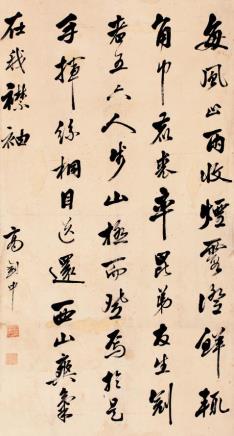 每風止雨收煙霞澄鮮輒
角巾鹿裘率昆弟友生冠
者五六人步山椒而登焉於是
手揮絲桐目送還西山爽氣
在我襟袖
高釗中